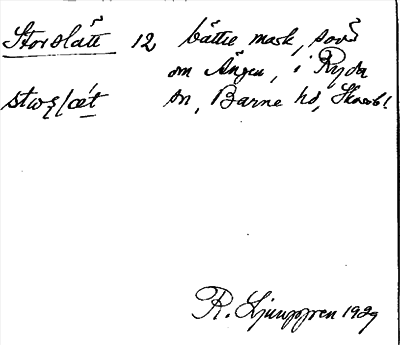 Storslått 12 bättre mosk, sov
om Ängen, i Ryda
sn, Barne hd, Skarab.l.
R. Ljunggren 1929